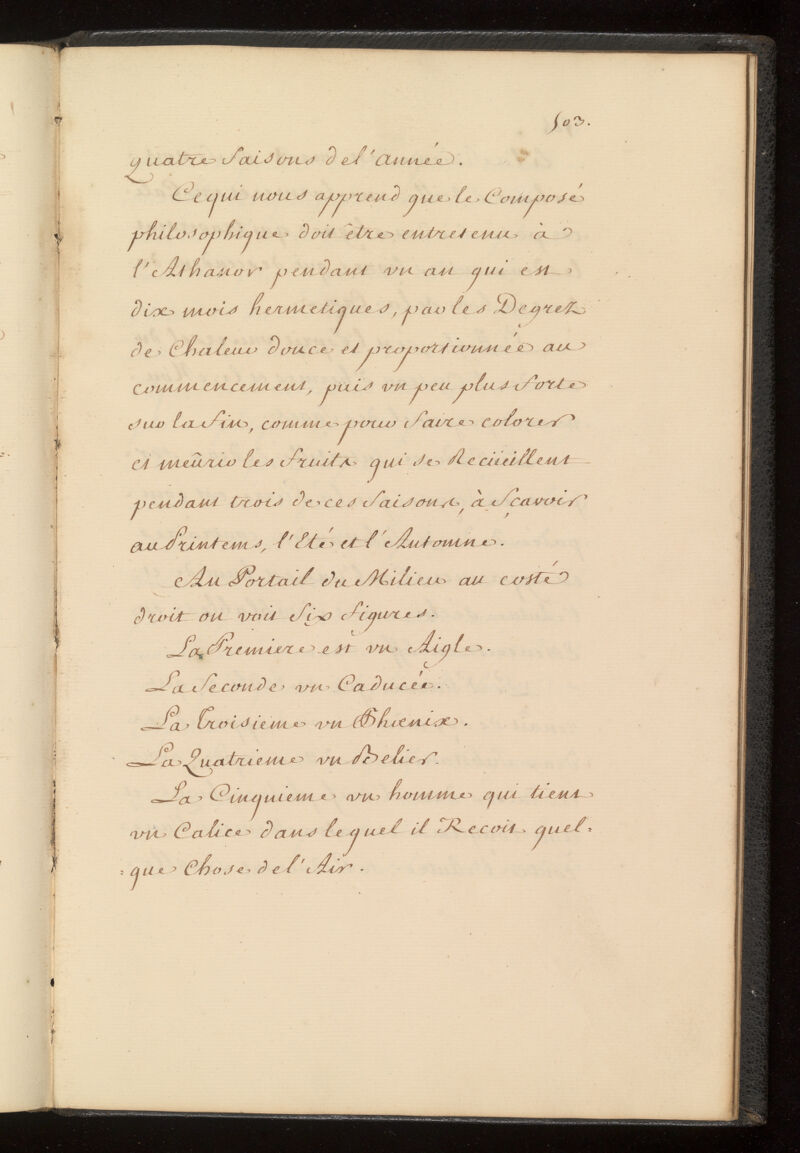 503.
quatre Saisons de l'année.
Ce qui nous apprend que le Composé
philosophique doit être entretenu à
l'Athanor pendant vn an qui est
dix mois hermetiques, par les Degrez
de Chaleur douce et proportionnée au
commencement, puis vn peu plus forte
sur la fin, comme pour faire colorer
et meûrir les fruits qui se Recüeillent
pendant trois de ces Saisons, à Scavoir
au Printems, l'Eté et l'Automne.
Au Portail du Milieu au costé
droit on voit Six figures.
La Premiere est vn Aigle.
La Seconde vn Caducée.
La Troisieme vn Phœnix.
La Quatrieme vn Belier.
La Cinquieme vn homme qui tient
vn Calice dans lequel il Recoit quel=
=que Chose de l'Air.